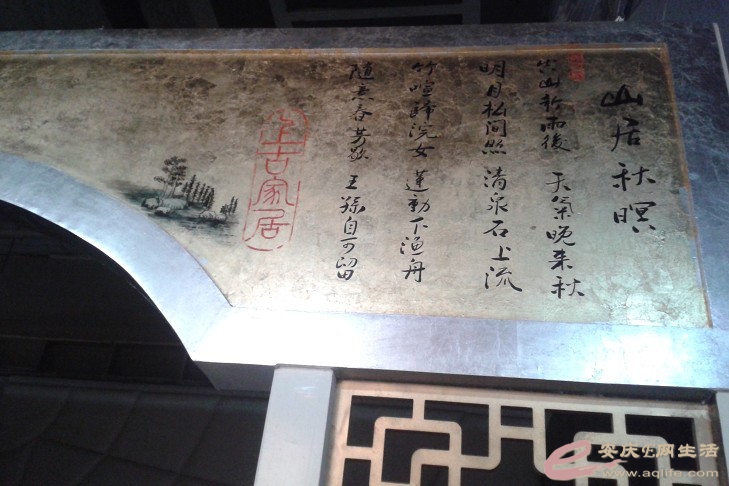 山居秋暝
空山新雨後 天氣晚来秋
明月松间照 清泉石上流
竹喧歸浣女 蓮動下漁舟
随意春芳歇 王孫自可留
上古家居
安庆e网生活
www.aqlife.com